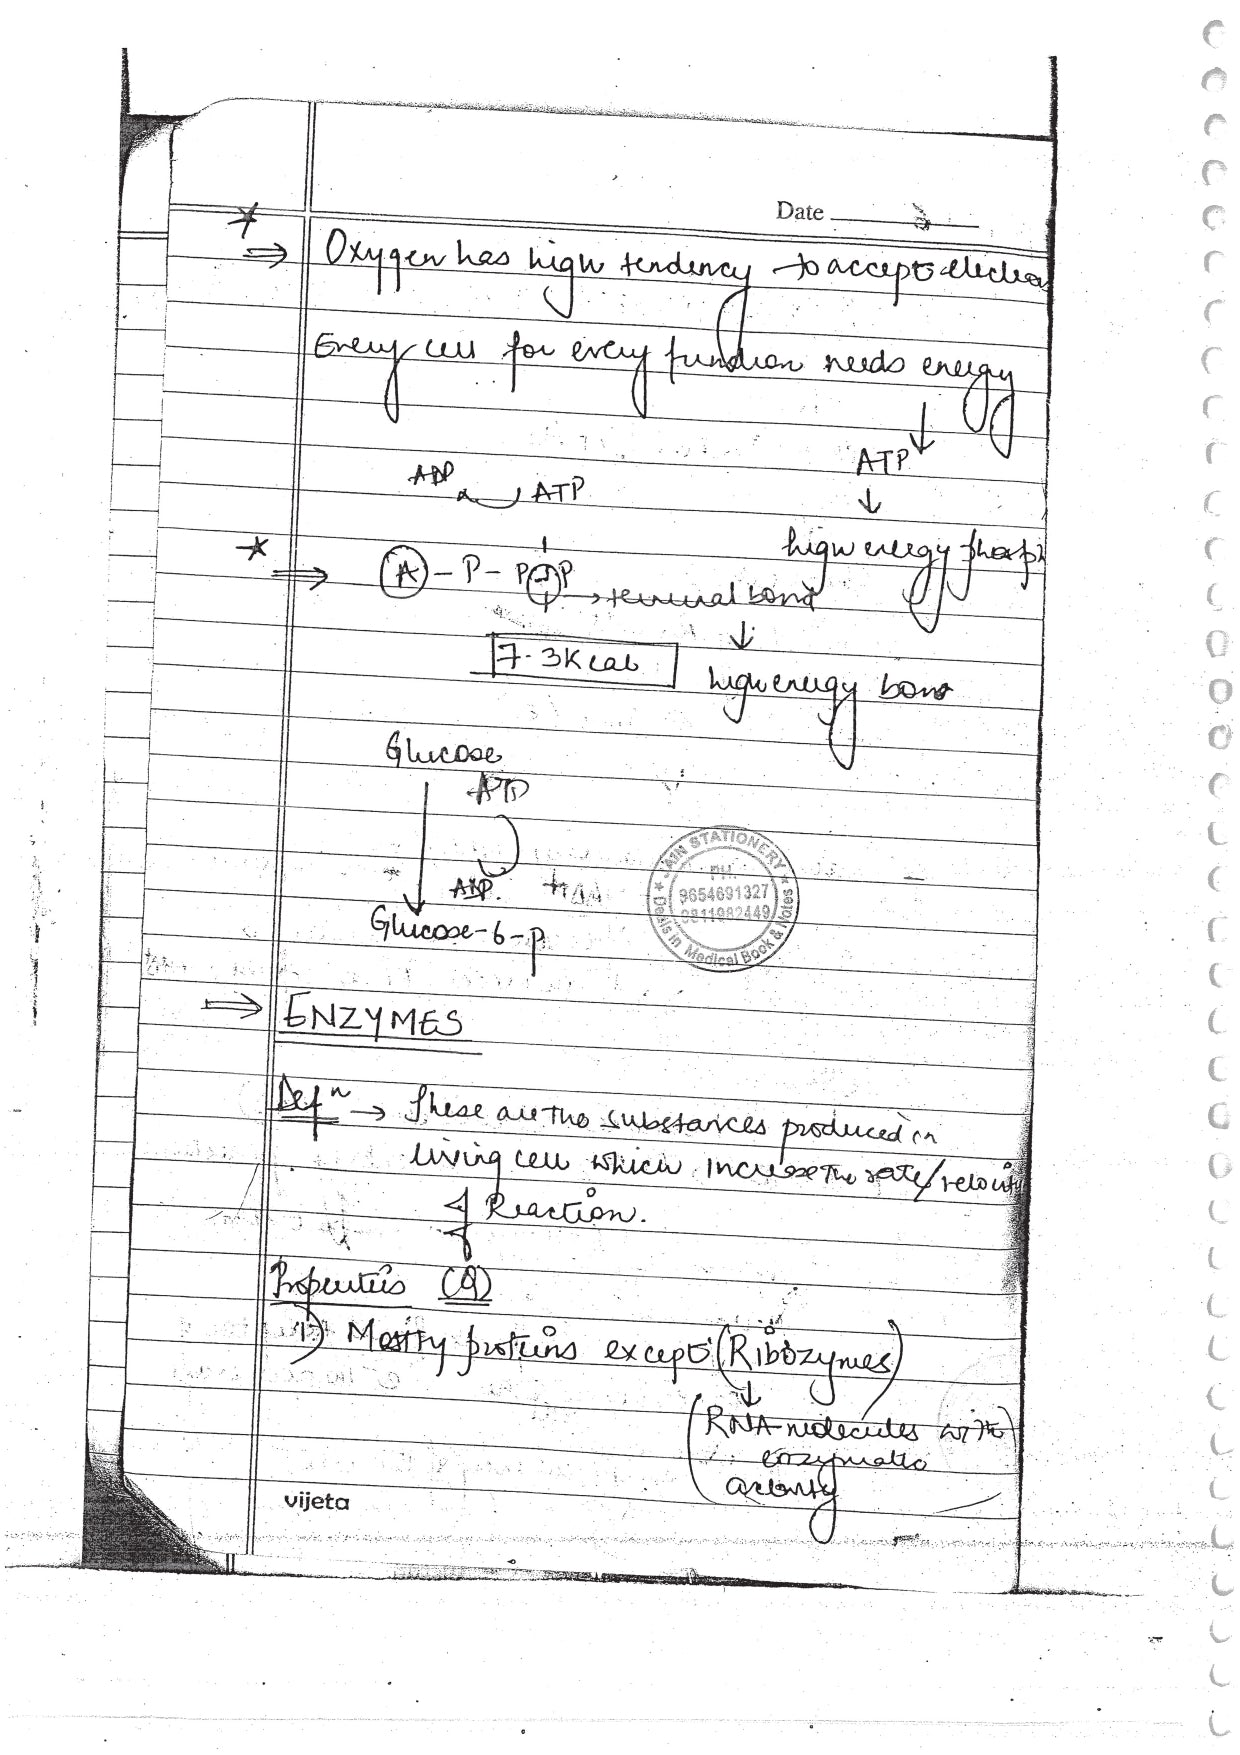 Date
⇒ Oxygen has high tendency to accept electron
Every cell for every function needs energy
↓
ATP
ADP ATP
↓
high energy phosph
⇒ A - P - P ~ P
→ terminal bond
↓
7.3Kcal
high energy bond
Glucose
ATP
ADP
Glucose-6-p
⇒ ENZYMES
Defn → These are the substances produced in
living cell which increase the rate/velocity
of Reaction.
Properties (Q)
1) Mostly proteins except (Ribozymes)
↓
(RNA molecules with
enzymatic
activity
vijeta
JAIN STATIONERY
PH
9654691327
9811982449
Deals in Medical Book & Notes